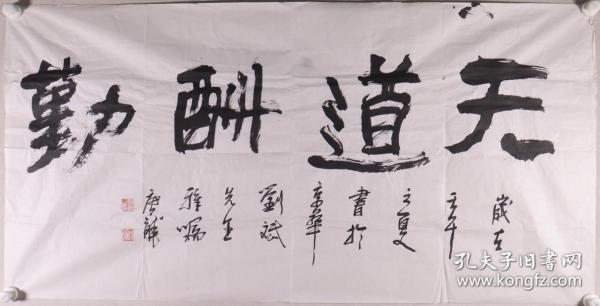 天道酬勤
歲在
壬午
之夏
書於
京華
劉斌
先生
雅嘱
唐龍
孔夫子旧书网
www.kongfz.com